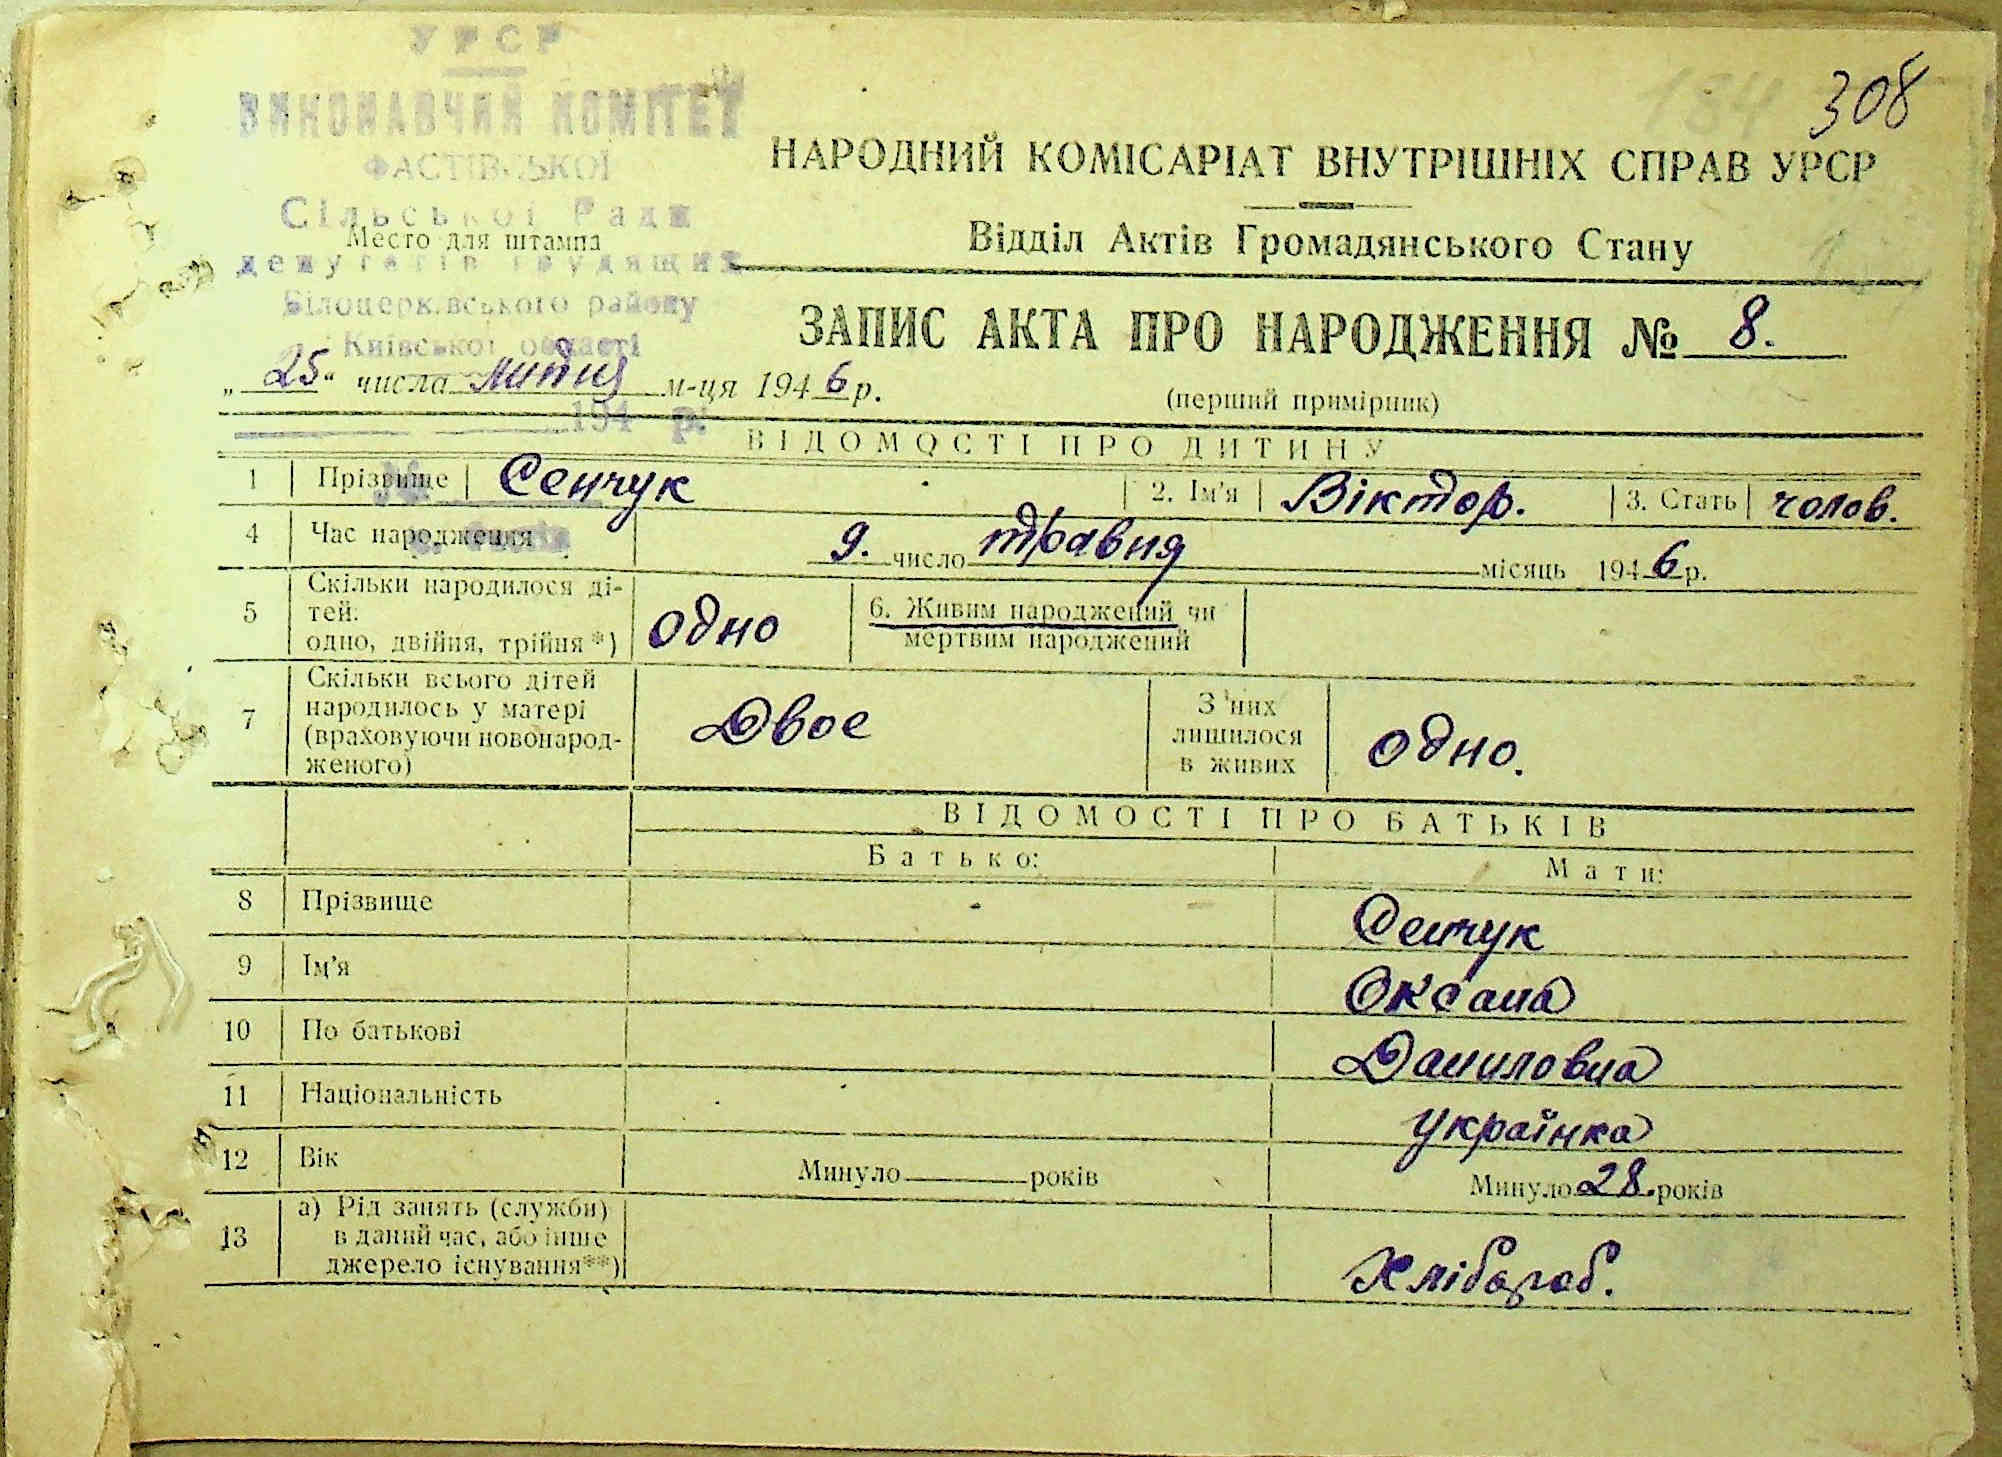 308
184
УРСР
ВИКОНАВЧИЙ КОМІТЕТ
ФАСТІВСЬКОЇ
Сільської Ради
депутатів трудящих
Білоцерківського району
Київської області
194 р.
Место для штампа
НАРОДНИЙ КОМІСАРІАТ ВНУТРІШНІХ СПРАВ УРСР
Відділ Актів Громадянського Стану
ЗАПИС АКТА ПРО НАРОДЖЕННЯ № 8.
„25“ числа липня м-ця 1946 р.
(перший примірник)
ВІДОМОСТІ ПРО ДИТИНУ
1 Прізвище Сенчук 2. Ім'я Віктор. 3. Стать чолов.
4 Час народження 9. число травня місяць 1946 р.
5 Скільки народилося ді-
тей:
одно, двійня, трійня *)
одно
6. Живим народжений чи
мертвим народжений
7 Скільки всього дітей
народилось у матері
(враховуючи новонарод-
женого)
Двое
З них
лишилося
в живих
одно.
ВІДОМОСТІ ПРО БАТЬКІВ
Батько: Мати:
8 Прізвище Сенчук
9 Ім'я Оксана
10 По батькові Даниловна
11 Національність українка
12 Вік Минуло років Минуло 28. років
13 а) Рід занять (служби)
в даний час, або інше
джерело існування**)
Хлібороб.